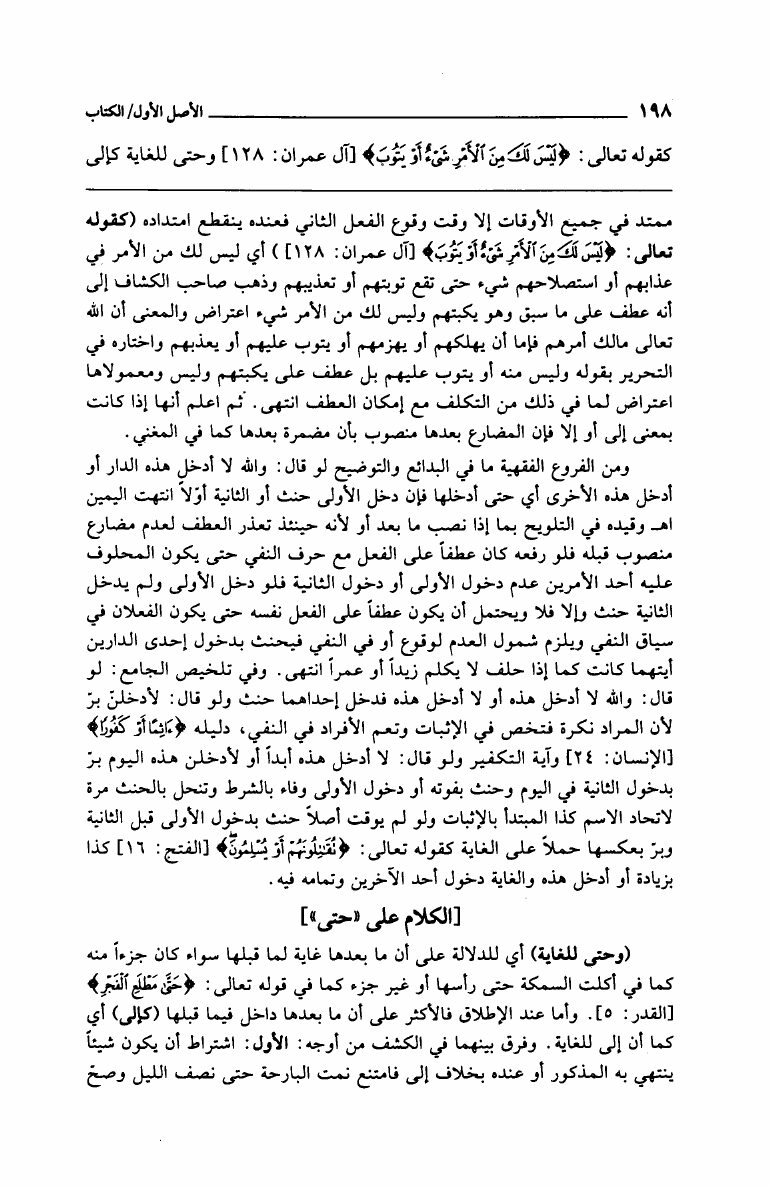 ١٩٨ ــــــــــــــــــــ الأصل الأول/ الكتاب
كقوله تعالى: ﴿لَيْسَ لَكَ مِنَ ٱلْأَمْرِ شَىْءٌ أَوْ يَتُوبَ﴾ [آل عمران: ١٢٨] وحتى للغاية كإلى
ممتد في جميع الأوقات إلا وقت وقوع الفعل الثاني فعنده ينقطع امتداده (كقوله
تعالى: ﴿لَيْسَ لَكَ مِنَ ٱلْأَمْرِ شَىْءٌ أَوْ يَتُوبَ﴾ [آل عمران: ١٢٨]) أي ليس لك من الأمر في
عذابهم أو استصلاحهم شيء حتى تقع توبتهم أو تعذيبهم وذهب صاحب الكشاف إلى
أنه عطف على ما سبق وهو يكبتهم وليس لك من الأمر شيء اعتراض والمعنى أن الله
تعالى مالك أمرهم فإما أن يهلكهم أو يهزمهم أو يتوب عليهم أو يعذبهم واختاره في
التحرير بقوله وليس منه أو يتوب عليهم بل عطف على يكبتهم وليس ومعمولاها
اعتراض لما في ذلك من التكلف مع إمكان العطف انتهى. ثم اعلم أنها إذا كانت
بمعنى إلى أو إلا فإن المضارع بعدها منصوب بأن مضمرة بعدها كما في المغني.
ومن الفروع الفقهية ما في البدائع والتوضيح لو قال: والله لا أدخل هذه الدار أو
أدخل هذه الأخرى أي حتى أدخلها فإن دخل الأولى حنث أو الثانية أوّلاً انتهت اليمين
اهـ وقيده في التلويح بما إذا نصب ما بعد أو لأنه حينئذ تعذر العطف لعدم مضارع
منصوب قبله فلو رفعه كان عطفاً على الفعل مع حرف النفي حتى يكون المحلوف
عليه أحد الأمرين عدم دخول الأولى أو دخول الثانية فلو دخل الأولى ولم يدخل
الثانية حنث وإلا فلا ويحتمل أن يكون عطفاً على الفعل نفسه حتى يكون الفعلان في
سياق النفي ويلزم شمول العدم لوقوع أو في النفي فيحنث بدخول إحدى الدارين
أيتهما كانت كما إذا حلف لا يكلم زيداً أو عمراً انتهى. وفي تلخيص الجامع: لو
قال: والله لا أدخل هذه أو لا أدخل هذه فدخل إحداهما حنث ولو قال: لأدخلنّ برّ
لأن المراد نكرة فتخص في الإثبات وتعم الأفراد في النفي، دليله ﴿ءَاثِمًا أَوْ كَفُورًا﴾
[الإنسان: ٢٤] وآية التكفير ولو قال: لا أدخل هذه أبداً أو لأدخلن هذه اليوم برّ
بدخول الثانية في اليوم وحنث بفوته أو دخول الأولى وفاء بالشرط وتنحل بالحنث مرة
لاتحاد الاسم كذا المبتدأ بالإثبات ولو لم يوقت أصلاً حنث بدخول الأولى قبل الثانية
وبرّ بعكسها حملاً على الغاية كقوله تعالى: ﴿نُقَٰتِلُونَهُمْ أَوْ يُسْلِمُونَۖ﴾ [الفتح: ١٦] كذا
بزيادة أو أدخل هذه والغاية دخول أحد الآخرين وتمامه فيه.
[الكلام على «حتى»]
(وحتى للغاية) أي للدلالة على أن ما بعدها غاية لما قبلها سواء كان جزءاً منه
كما في أكلت السمكة حتى رأسها أو غير جزء كما في قوله تعالى: ﴿حَتَّىٰ مَطْلَعِ ٱلْفَجْرِ﴾
[القدر: ٥]. وأما عند الإطلاق فالأكثر على أن ما بعدها داخل فيما قبلها (كإلى) أي
كما أن إلى للغاية. وفرق بينهما في الكشف من أوجه: الأول: اشتراط أن يكون شيئاً
ينتهي به المذكور أو عنده بخلاف إلى فامتنع نمت البارحة حتى نصف الليل وصحّ